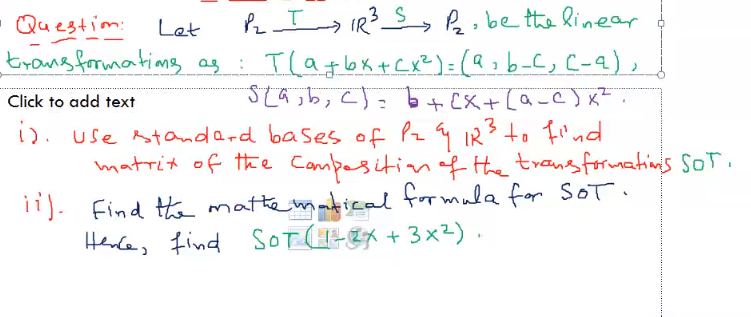 Question: Let P₂ T→ IR³ S→ P₂, be the linear
transformations as : T(a+bx+cx²)=(a, b-c, c-a),
Click to add text
S(a,b,c)= b+cx+(a-c)x².
i). Use standard bases of P₂ & IR³ to find
matrix of the Composition of the transformations SOT.
ii). Find the mathematical formula for SOT.
Hence, find SOT(1-2x+3x²).